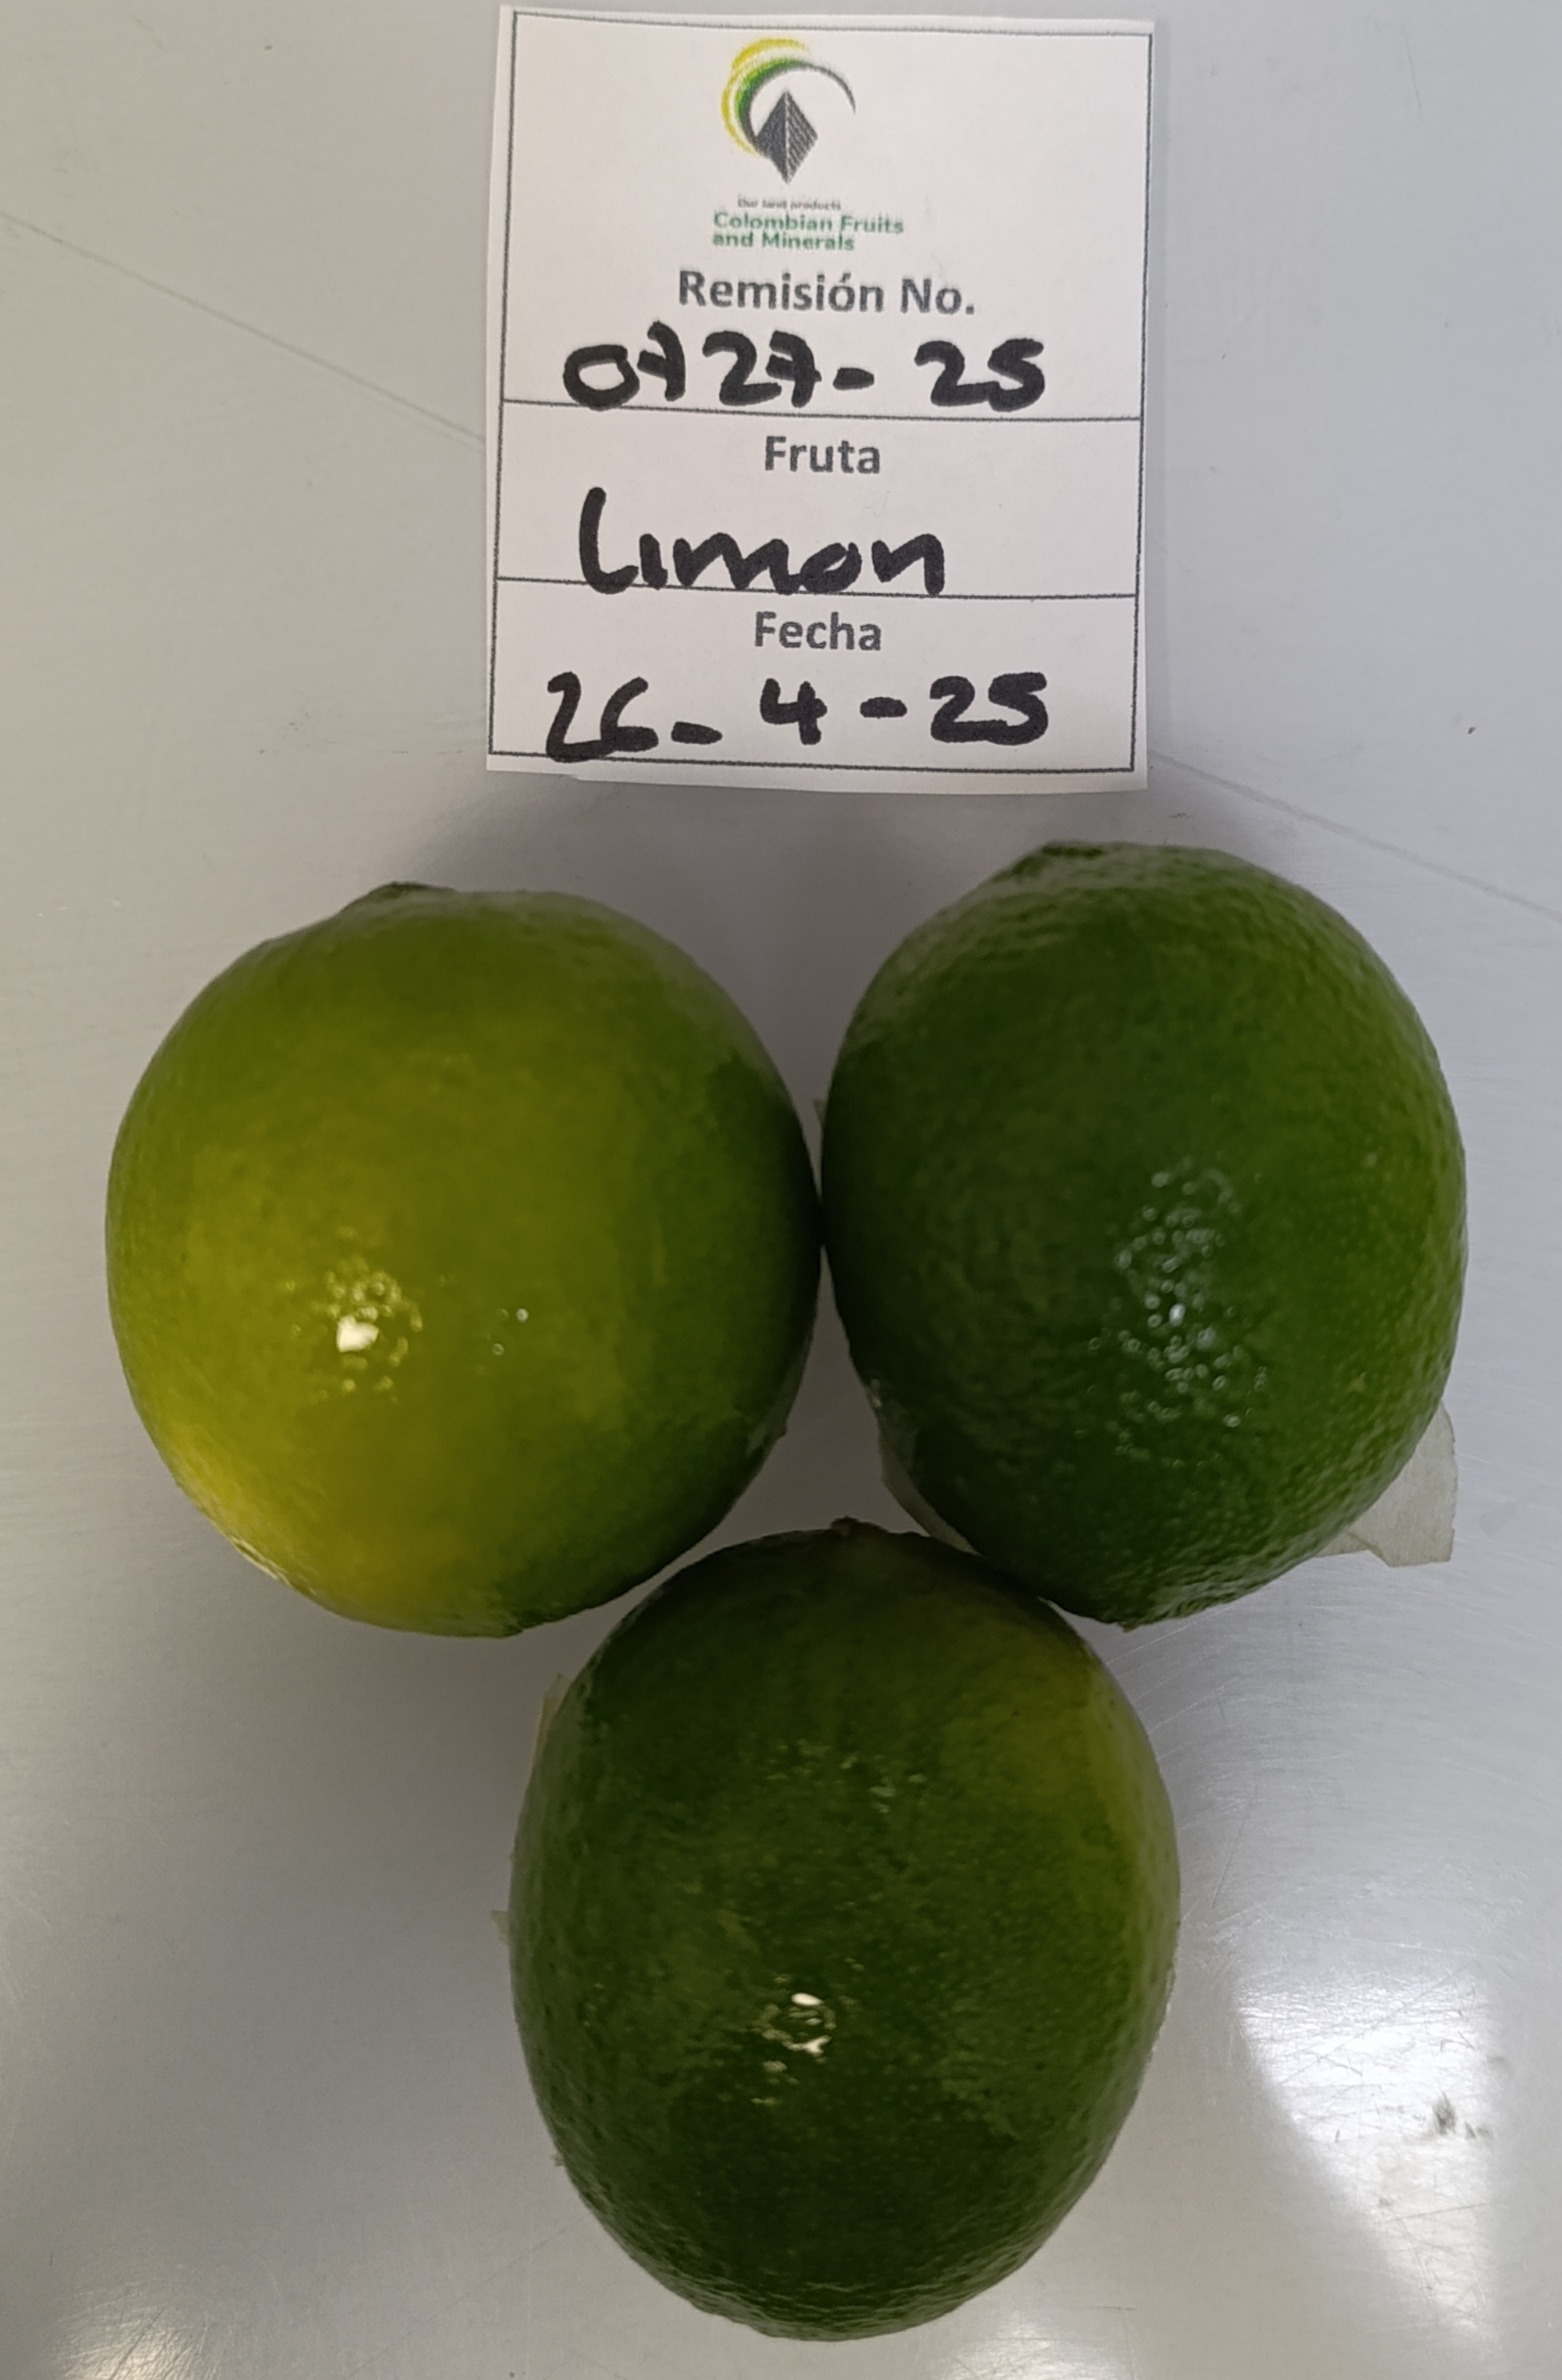 Our land products
Colombian Fruits
and Minerals
Remisión No.
0727-25
Fruta
Limon
Fecha
26-4-25